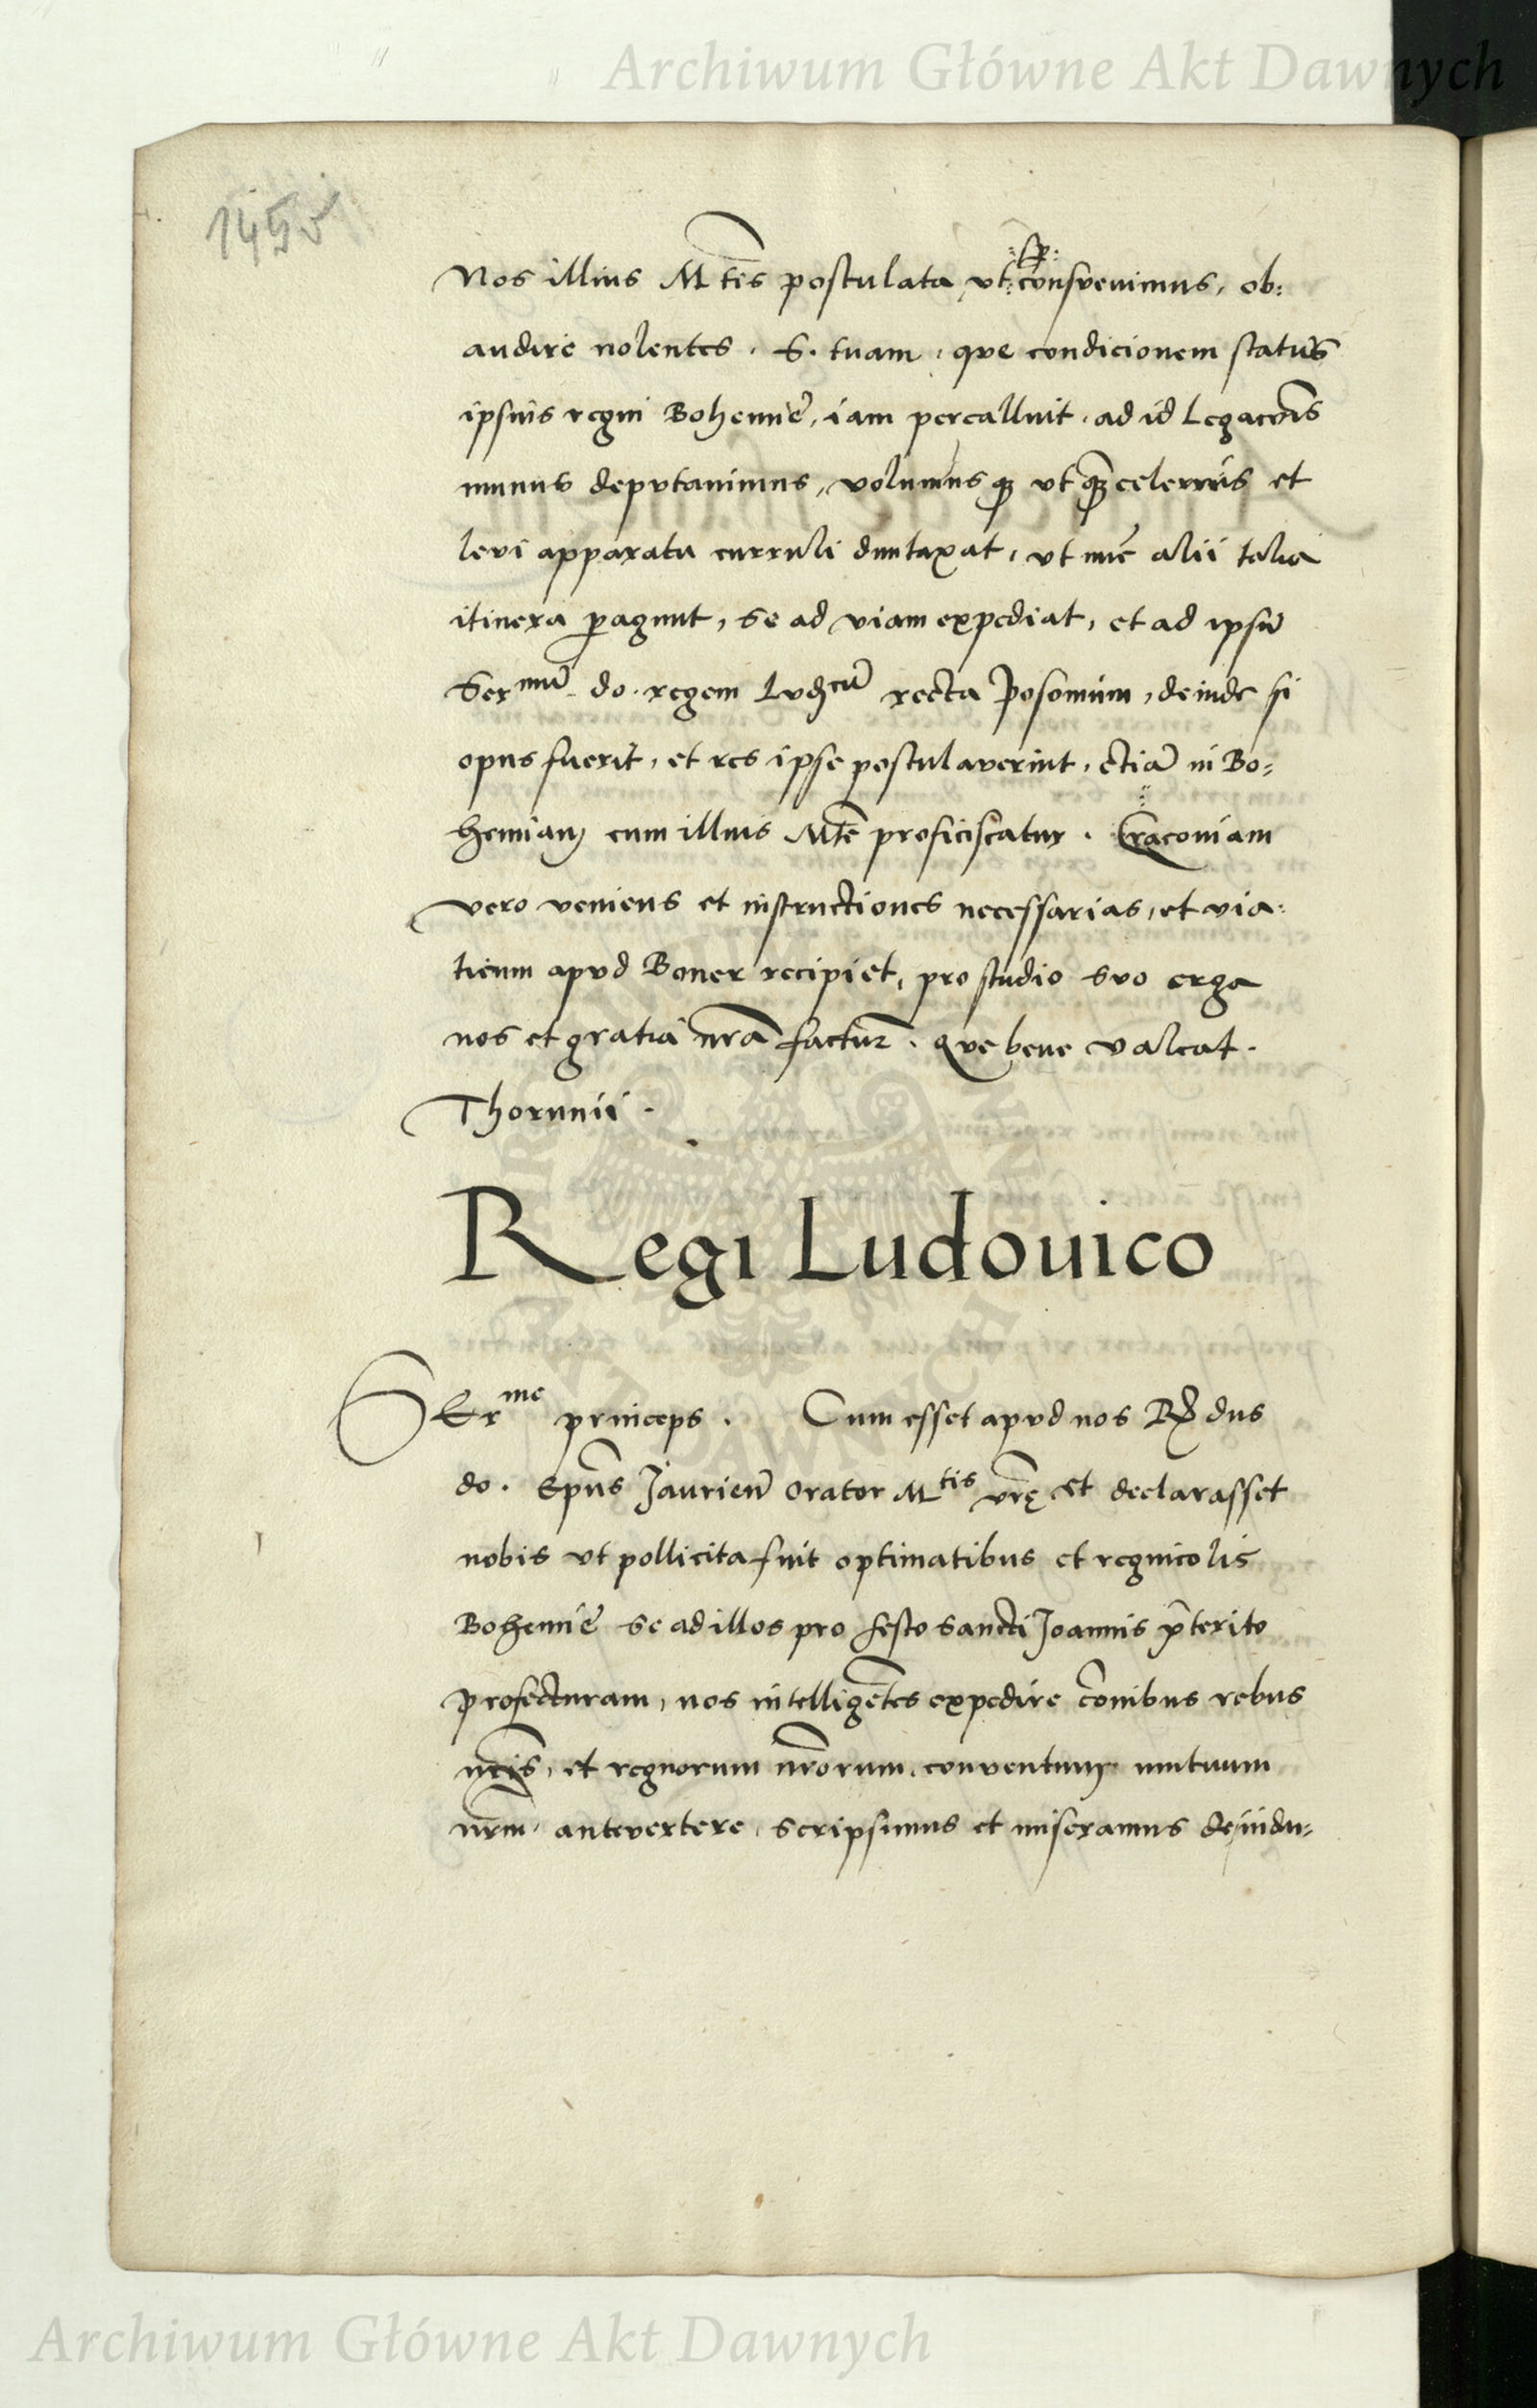 Archiwum Główne Akt Dawnych
145v
Nos illius Mtēs postulata vt consvevimus, ob:
audire nolentes. S. tuam, que condicionem status
ipsius regni Bohemie, iam percalluit, ad id Legacōis
munus deputavimus, volumusq3 vt q3celerrius et
levi apparatu curruli duntaxat, vt nūc alii talia
itinera peragunt, se ad viam expediat, et ad ipsū
Sermū do. regem Ludcū recta Posonium, deinde si
opus fuerit, et res ipse postulaverint, etiā in Bo=
hemiam cum illius Mtē proficiscatur. Cracoviam
vero veniens et instructiones necessarias, et via:
ticum apud Boner recipiet, pro studio svo erga
nos et gratiā nrā factur. Que bene valeat.
Thorunii.
Regi Ludouico
SErme princeps. Cum esset apud nos Rd dus
do. Epūs Jaurien orator Mtis vrę et declarasset
nobis vt pollicita fuit optimatibus et regnicolis
Bohemie se ad illos pro festo sancti Joannis p̄terito
profecturam, nos intelligētes expedire cōnibus rebus
nris, et regnorum nrorum, conventum mutuum
nrm antevertere scripsimus et miseramus de indu=
AKT DAWNYCH
Archiwum Główne Akt Dawnych